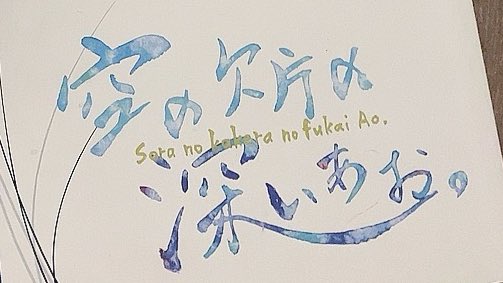 空の欠片の
Sora no kakera no fukai Ao.
深いあお。